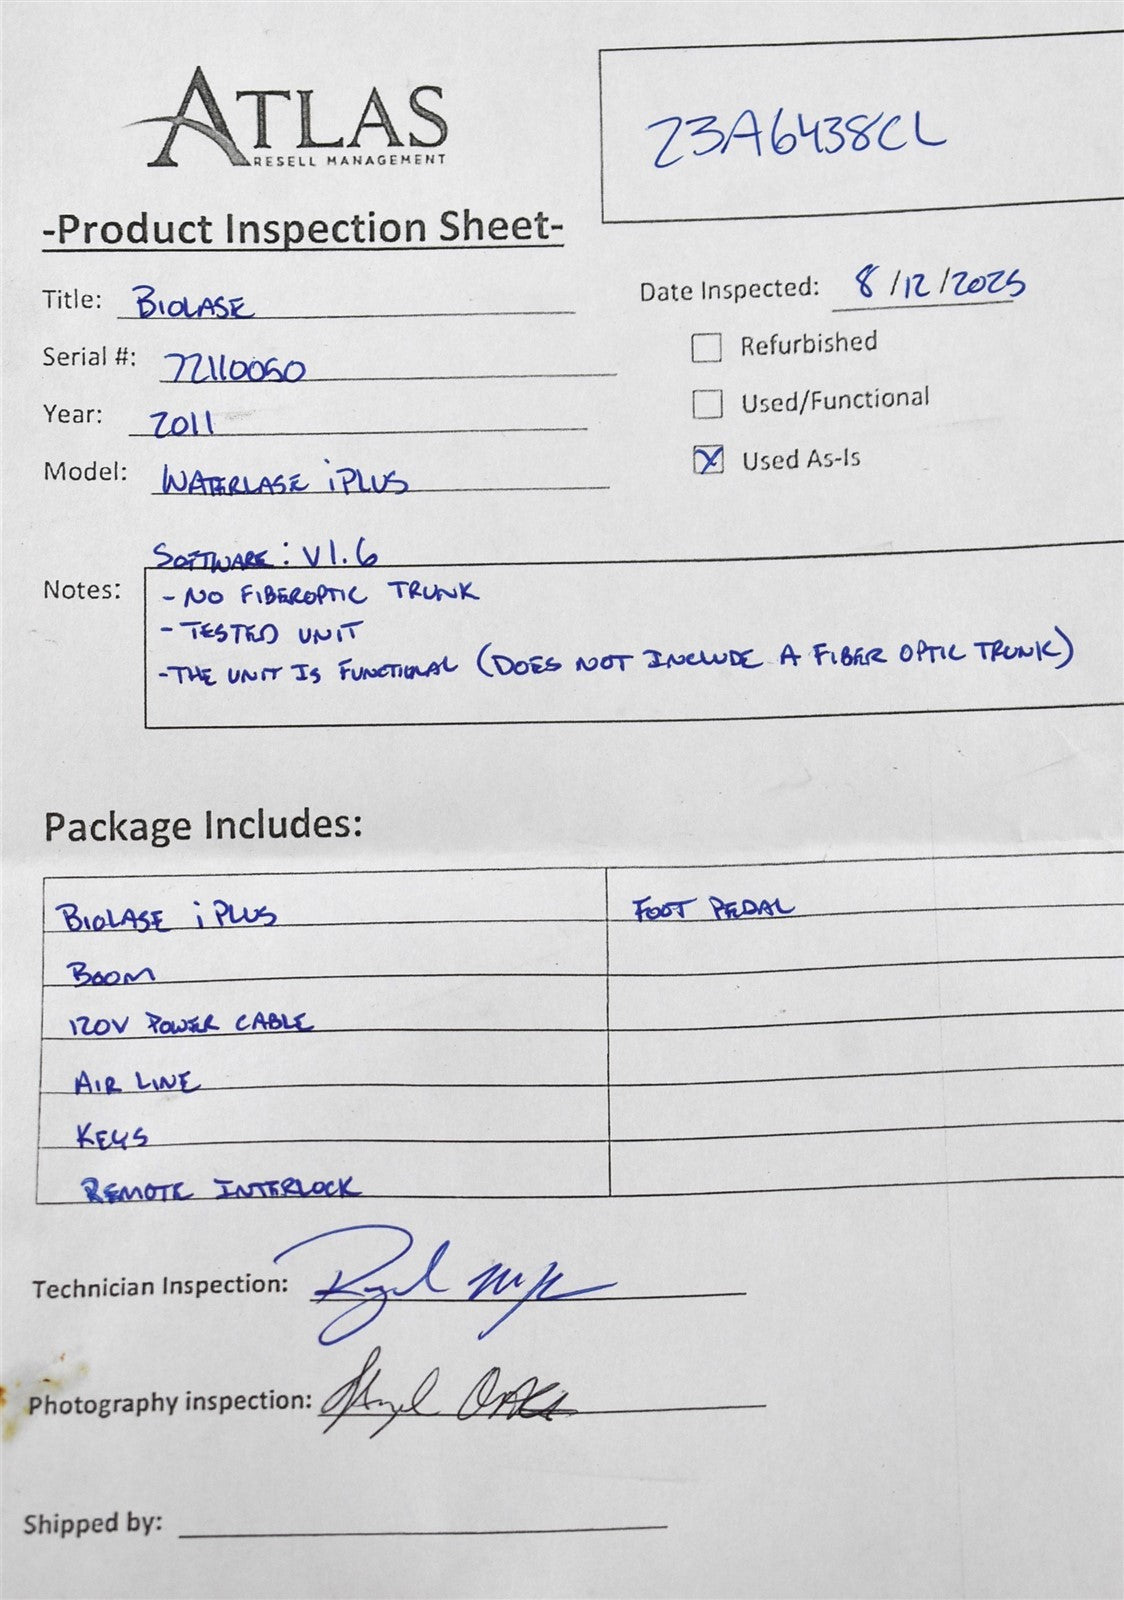 ATLAS
RESELL MANAGEMENT
23A6438CL
-Product Inspection Sheet-
Title: BIOLASE
Date Inspected: 8/12/2025
Serial #: 72110050
Refurbished
Year: 2011
Used/Functional
Model: WATERLASE iPLUS
Used As-Is
SOFTWARE: V1.6
Notes:
- NO FIBEROPTIC TRUNK
- TESTED UNIT
- THE UNIT IS FUNCTIONAL (DOES NOT INCLUDE A FIBER OPTIC TRUNK)
Package Includes:
BIOLASE iPLUS FOOT PEDAL
BOOM
120V POWER CABLE
AIR LINE
KEYS
REMOTE INTERLOCK
Technician Inspection:
Photography inspection:
Shipped by: